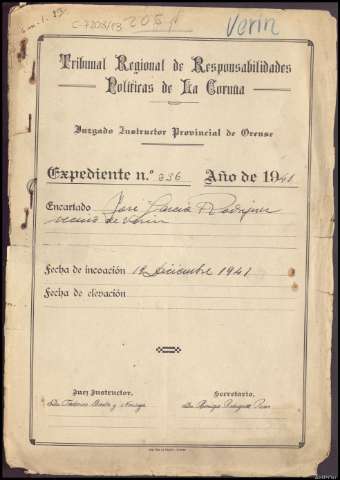 C-7208/13
Verin
Tribunal Regional de Responsabilidades
Políticas de La Coruña
Juzgado Instructor Provincial de Orense
Expediente n.º 336 Año de 1941
Encartado José García Rodríguez
vecino de Verin
Fecha de incoación 12 Diciembre 1941
Fecha de elevación
Juez Instructor, Secretario,